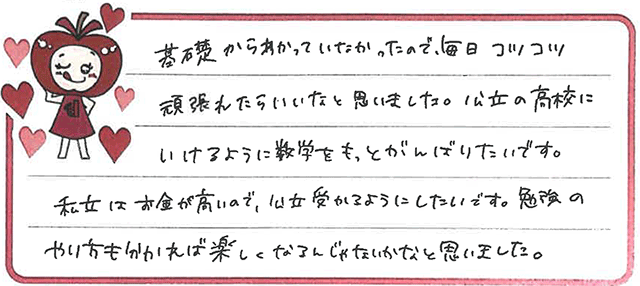 基礎からわかっていなかったので、毎日コツコツ
頑張れたらいいなと思いました。公立の高校に
いけるように数学をもっとがんばりたいです。
私立はお金が高いので、公立受かるようにしたいです。勉強の
やり方も分かれば楽しくなるんじゃないかなと思いました。